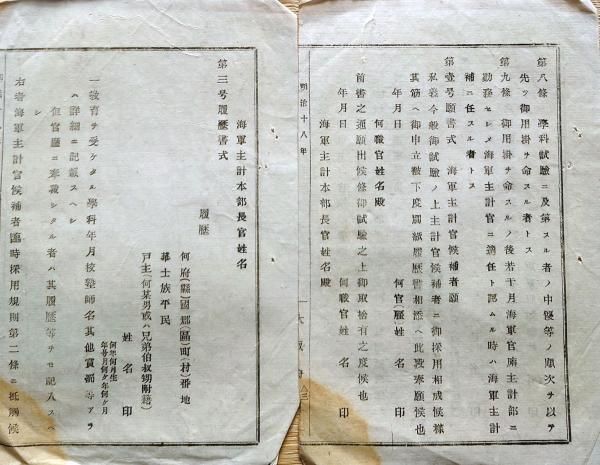 第八條 學科試驗ニ及第スル者ノ中優等ノ順次ヲ以テ
先ツ御用掛ヲ命スル者トス
第九條 御用掛ヲ命スルノ後若干月海軍官廨主計部ニ
勤務セシメ海軍主計官ニ適任ト認ムル時ハ海軍主計
補ニ任スル者トス
第壹号願書式 海軍主計官候補者願
私義今般御試驗ノ上主計官候補者ニ御採用相成候樣
其筋ヘ御申立被下度別紙履歷書相添ヘ此段奉願候也
年月日
何(官)職姓名 印
何職官姓名殿
前書之通願出候條御試驗之上御取捨有之度候也
年月日
何職官姓名 印
海軍主計本部長官姓名殿
明治十八年
第三号履歷書式
海軍主計本部長官姓名
履歷
何府(縣)國郡(區)町(村)番地
華士族平民
戶主(何某男或ハ兄弟伯叔甥附籍)
姓名 印
何年何月生
年号月何年何ケ月
一敎育ヲ受ケタル學科年月校塾師名其他賞罰等アラ
ハ詳細ニ記載スヘシ
但官廳ニ奉職シタル者ハ其履歷等ヲモ記入スヘ
シ
右者海軍主計官候補者臨時採用規則第二條ニ抵觸候